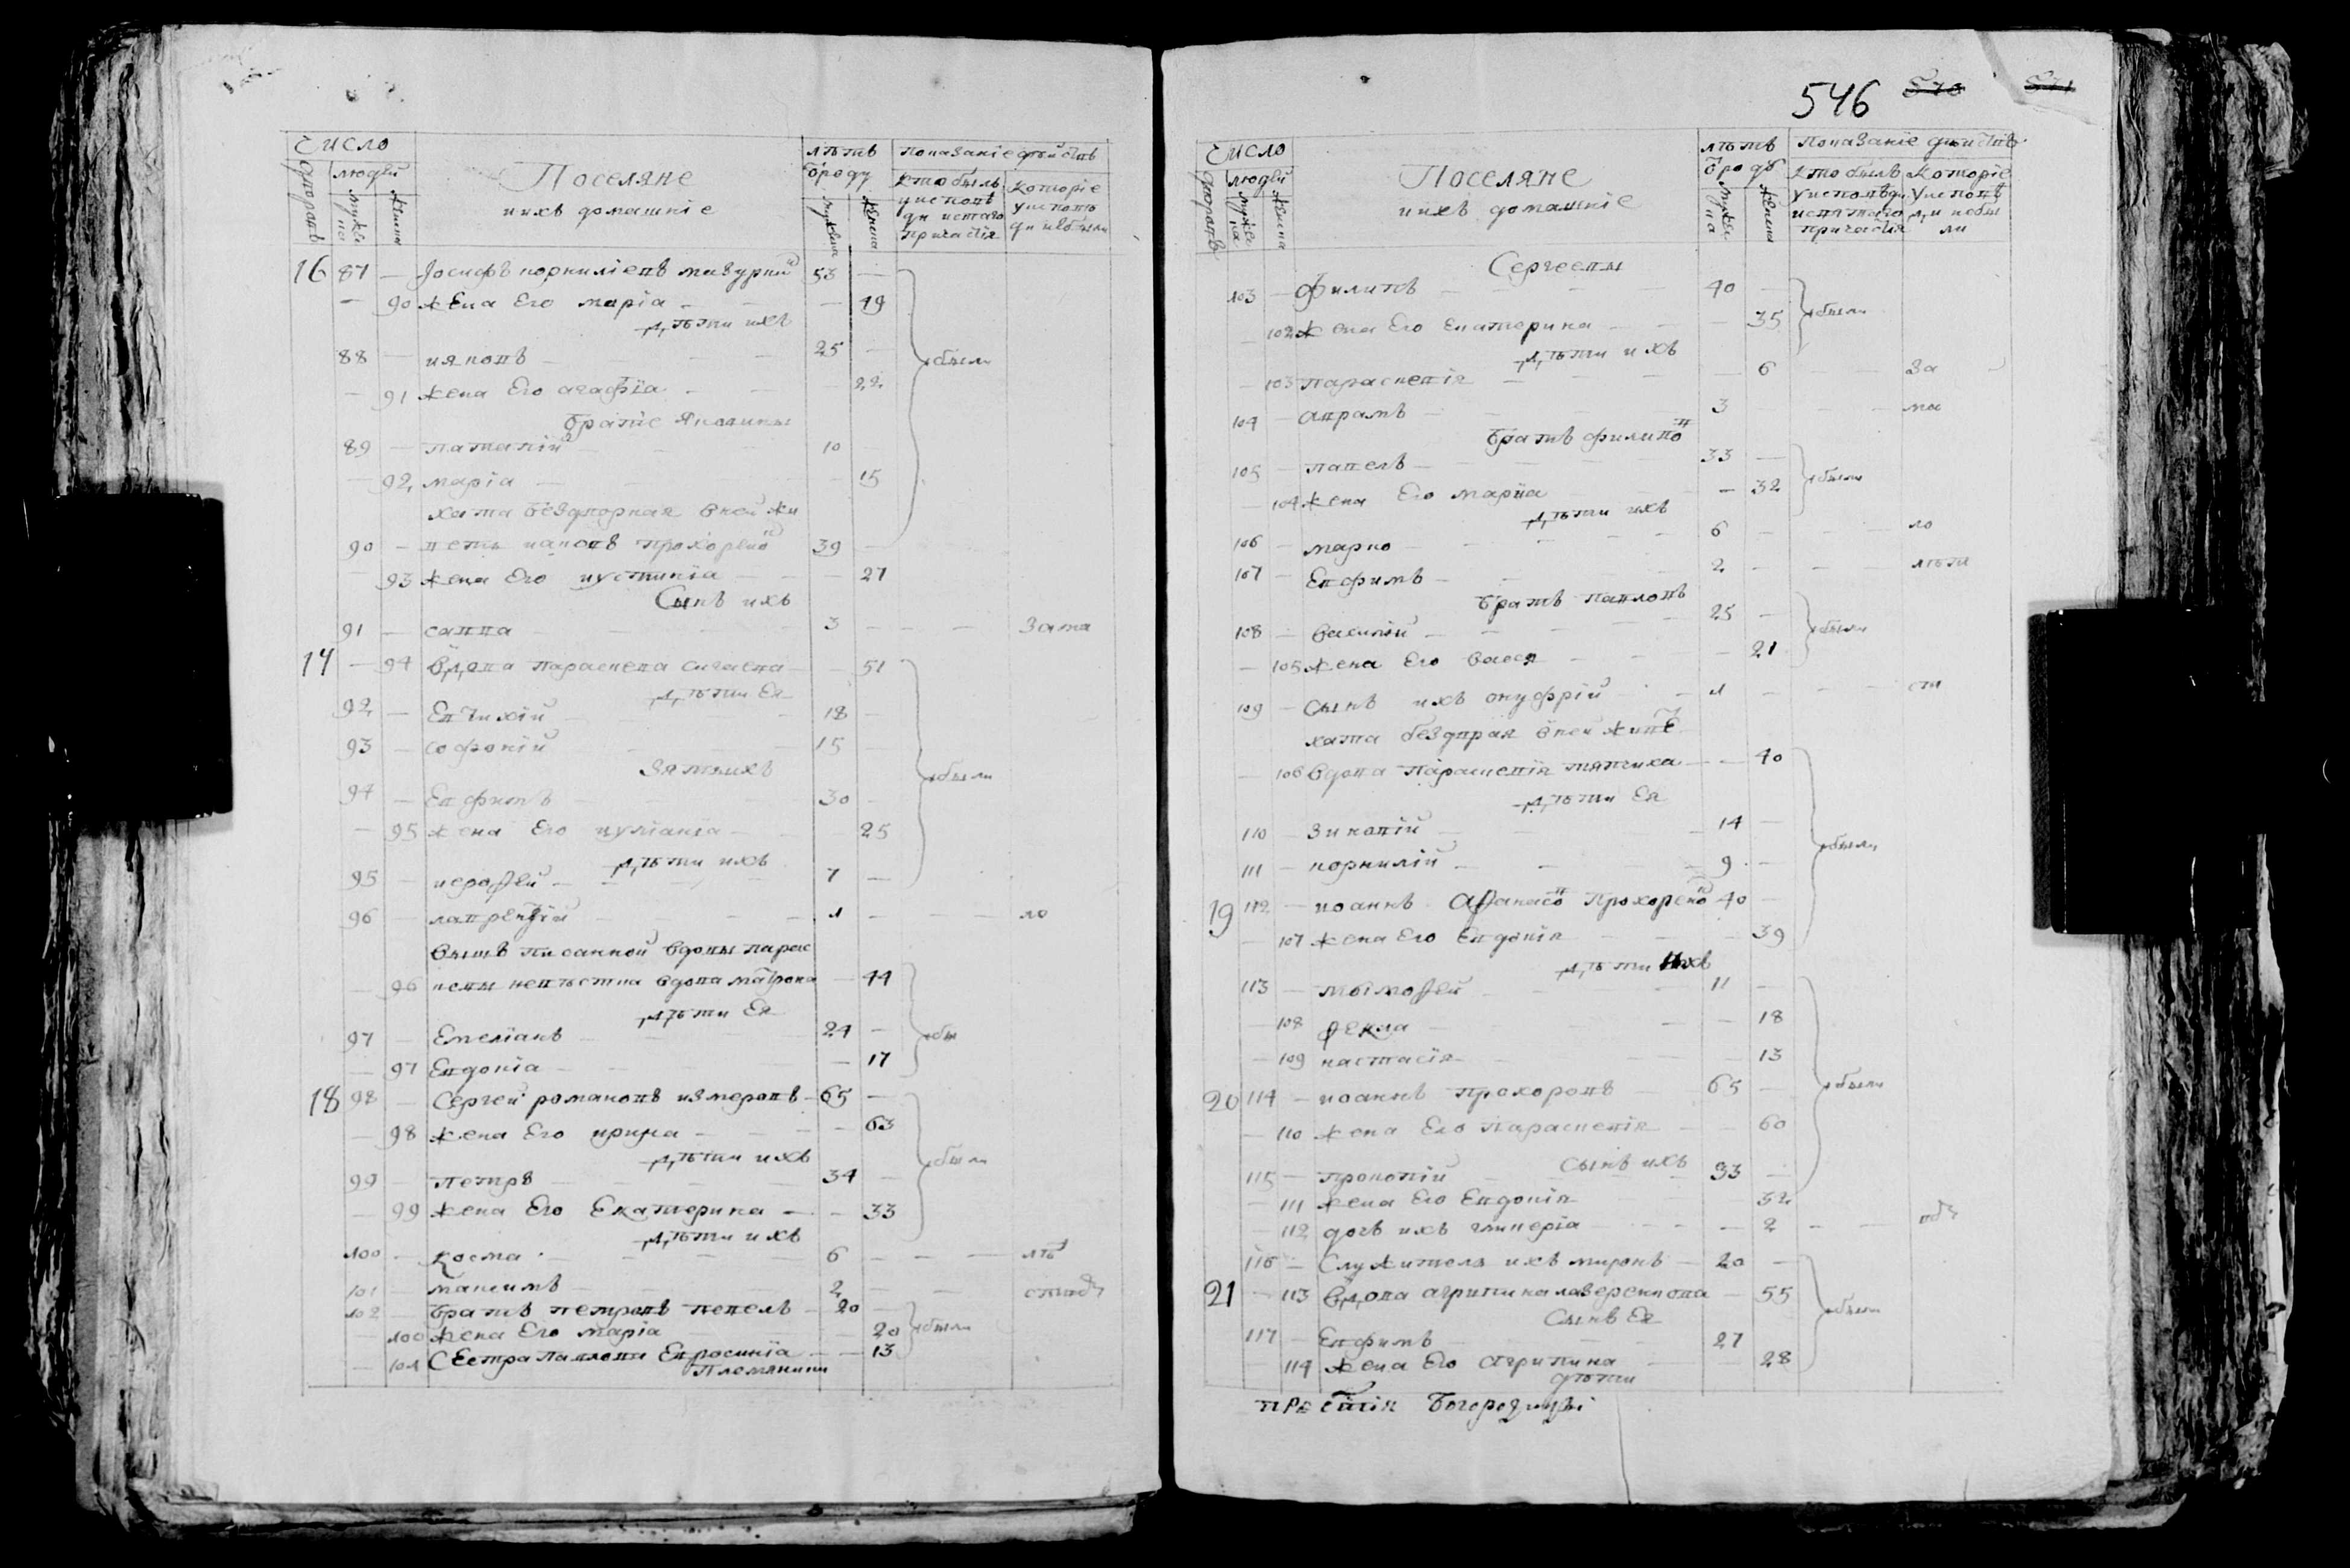 Число
дворовъ
людей
мужеска
женска
Поселяне
и ихъ домашніе
лѣтъ
ѿ роду
мужеска
женска
Показаніе дѣйствъ
кто былъ у исповѣди и с̃таго причастія
которіе у исповѣди не были
16 87 — Іосифъ корниліевъ мазуркий 53 —
— 90 жена Его марія — — 49
дѣти ихъ
88 — яковъ — 25 —
были
— 91 жена Его агафїа — 22
братіе Яковины
89 — патапій — 10
— 92 марія — 15
хата бездворная в ней жи
90 — ветъ яковъ прохорен 39 —
— 93 жена Его иустинїа — — 27
Сынъ ихъ
91 — савва — 3 — — За ма
17 — 94 вдова параскева — — 51
дѣти Ея
92 — Евтихій — 18 —
93 — софроній — 15
Зять ихъ
были
94 — Евфимъ — 30 —
— 95 жена Его иуліанїа — 25
дѣти ихъ
95 — иероѳей — 7 —
96 — лаврентїй — 1 — — ло
вышъ писанной вдовы парас
— 96 кевы невѣстка вдова матрона — 44
дѣти Ея
97 — Емелїанъ — 24 —
бы
— 97 Евдокїа — 17
18 98 — Сергей романовъ — 65 —
— 98 жена Его ирина — — 63
дѣти ихъ
были
99 — петръ — 34 —
— 99 жена Его Екатерина — — 33
дѣти ихъ
100 — косма — 6 — — лѣ
101 — максимъ — 2 — —
102 — братъ петровъ павелъ — 20 —
— 100 жена Его марїа — 20 были
— 101 сестра павлова Евросинїа — — 13
Племяники
546 570 571
Число
дворовъ
людей
мужеска
женска
Поселяне
и ихъ домашніе
лѣтъ
ѿ роду
мужеска
женска
Показаніе дѣйствъ
кто былъ у исповѣди и с̃таго причастія
которіе у исповѣди не были
Сергеевы
103 — филипъ — 40 —
были
— 102 жена Его Екатерина — 35
дѣти ихъ
— 103 параскевія — — 6 — За
104 — аврамъ — 3 — ма
братъ филипо
105 — павелъ — 33 —
были
— 104 жена Его марїа — 32
дѣти ихъ
106 — марко — 6 — — ло
107 — Евфимъ — 2 — — лѣти
братъ павловъ
108 — василій — 25 —
были
— 105 жена Его васса — 21
109 — сынъ ихъ онуфрій — 1 — — сти
хата бездврая в ней живе
— 106 вдова параскевїя — — 40
дѣти Ея
110 — зиновїй — 14 —
были
111 — корнилїй — 9 —
19 112 — иоаннъ Аѳанасо Прохорен 40 —
— 107 жена Его Евдокія — 39
дѣти ихъ
113 — тимоѳей — 11 —
— 108 ѳекла — — 18
— 109 настасїя — 13
были
20 114 — иоаннъ прохоровъ — 65 —
— 110 жена Его параскевія — 60
сынъ ихъ
115 — прокопїй — 33 —
— 111 жена Его Евдокія — 32
— 112 дочь ихъ гликерїа — — 2 — —
116 — Служитель ихъ миронъ — 20 —
21 — 113 вдова агрипина лаверентова — 55
были
Сынъ Ея
117 — Евфимъ — 27
— 114 жена Его агрипина — 28
дѣти